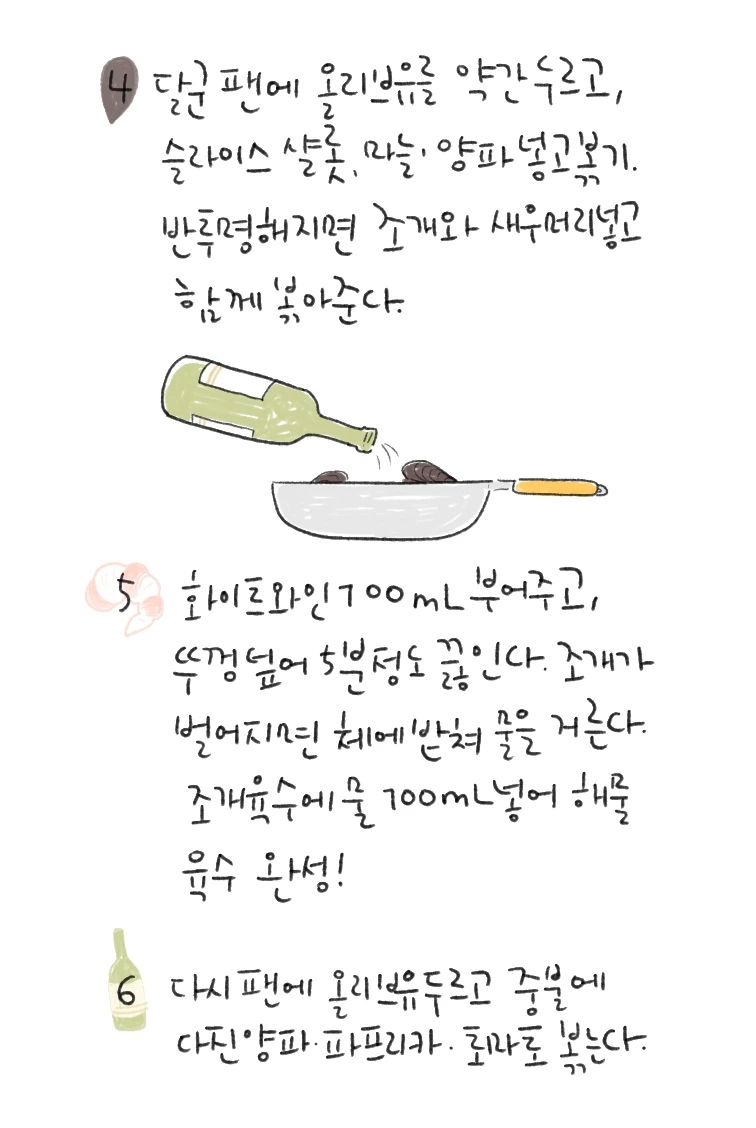 4 달군 팬에 올리브유를 약간 두르고,
슬라이스 샬롯, 마늘, 양파 넣고 볶기.
반투명해지면 조개와 새우머리 넣고
함께 볶아준다.
5 화이트와인 700mL 부어주고,
뚜껑 덮어 5분 정도 끓인다. 조개가
벌어지면 체에 받쳐 물을 거른다.
조개육수에 물 700mL 넣어 해물
육수 완성!
6 다시 팬에 올리브유 두르고 중불에
다진양파·파프리카·토마토 볶는다.